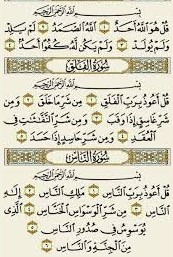 بِسْمِ اللَّهِ الرَّحْمَٰنِ الرَّحِيمِ
قُلْ هُوَ اللَّهُ أَحَدٌ ۝ اللَّهُ الصَّمَدُ ۝ لَمْ يَلِدْ
وَلَمْ يُولَدْ ۝ وَلَمْ يَكُن لَّهُ كُفُوًا أَحَدٌ ۝
سُورَةُ الْفَلَقِ
بِسْمِ اللَّهِ الرَّحْمَٰنِ الرَّحِيمِ
قُلْ أَعُوذُ بِرَبِّ الْفَلَقِ ۝ مِن شَرِّ مَا خَلَقَ ۝ وَمِن
شَرِّ غَاسِقٍ إِذَا وَقَبَ ۝ وَمِن شَرِّ النَّفَّاثَاتِ فِي
الْعُقَدِ ۝ وَمِن شَرِّ حَاسِدٍ إِذَا حَسَدَ ۝
سُورَةُ النَّاسِ
بِسْمِ اللَّهِ الرَّحْمَٰنِ الرَّحِيمِ
قُلْ أَعُوذُ بِرَبِّ النَّاسِ ۝ مَلِكِ النَّاسِ ۝ إِلَٰهِ
النَّاسِ ۝ مِن شَرِّ الْوَسْوَاسِ الْخَنَّاسِ ۝ الَّذِي
يُوَسْوِسُ فِي صُدُورِ النَّاسِ ۝
مِنَ الْجِنَّةِ وَالنَّاسِ ۝